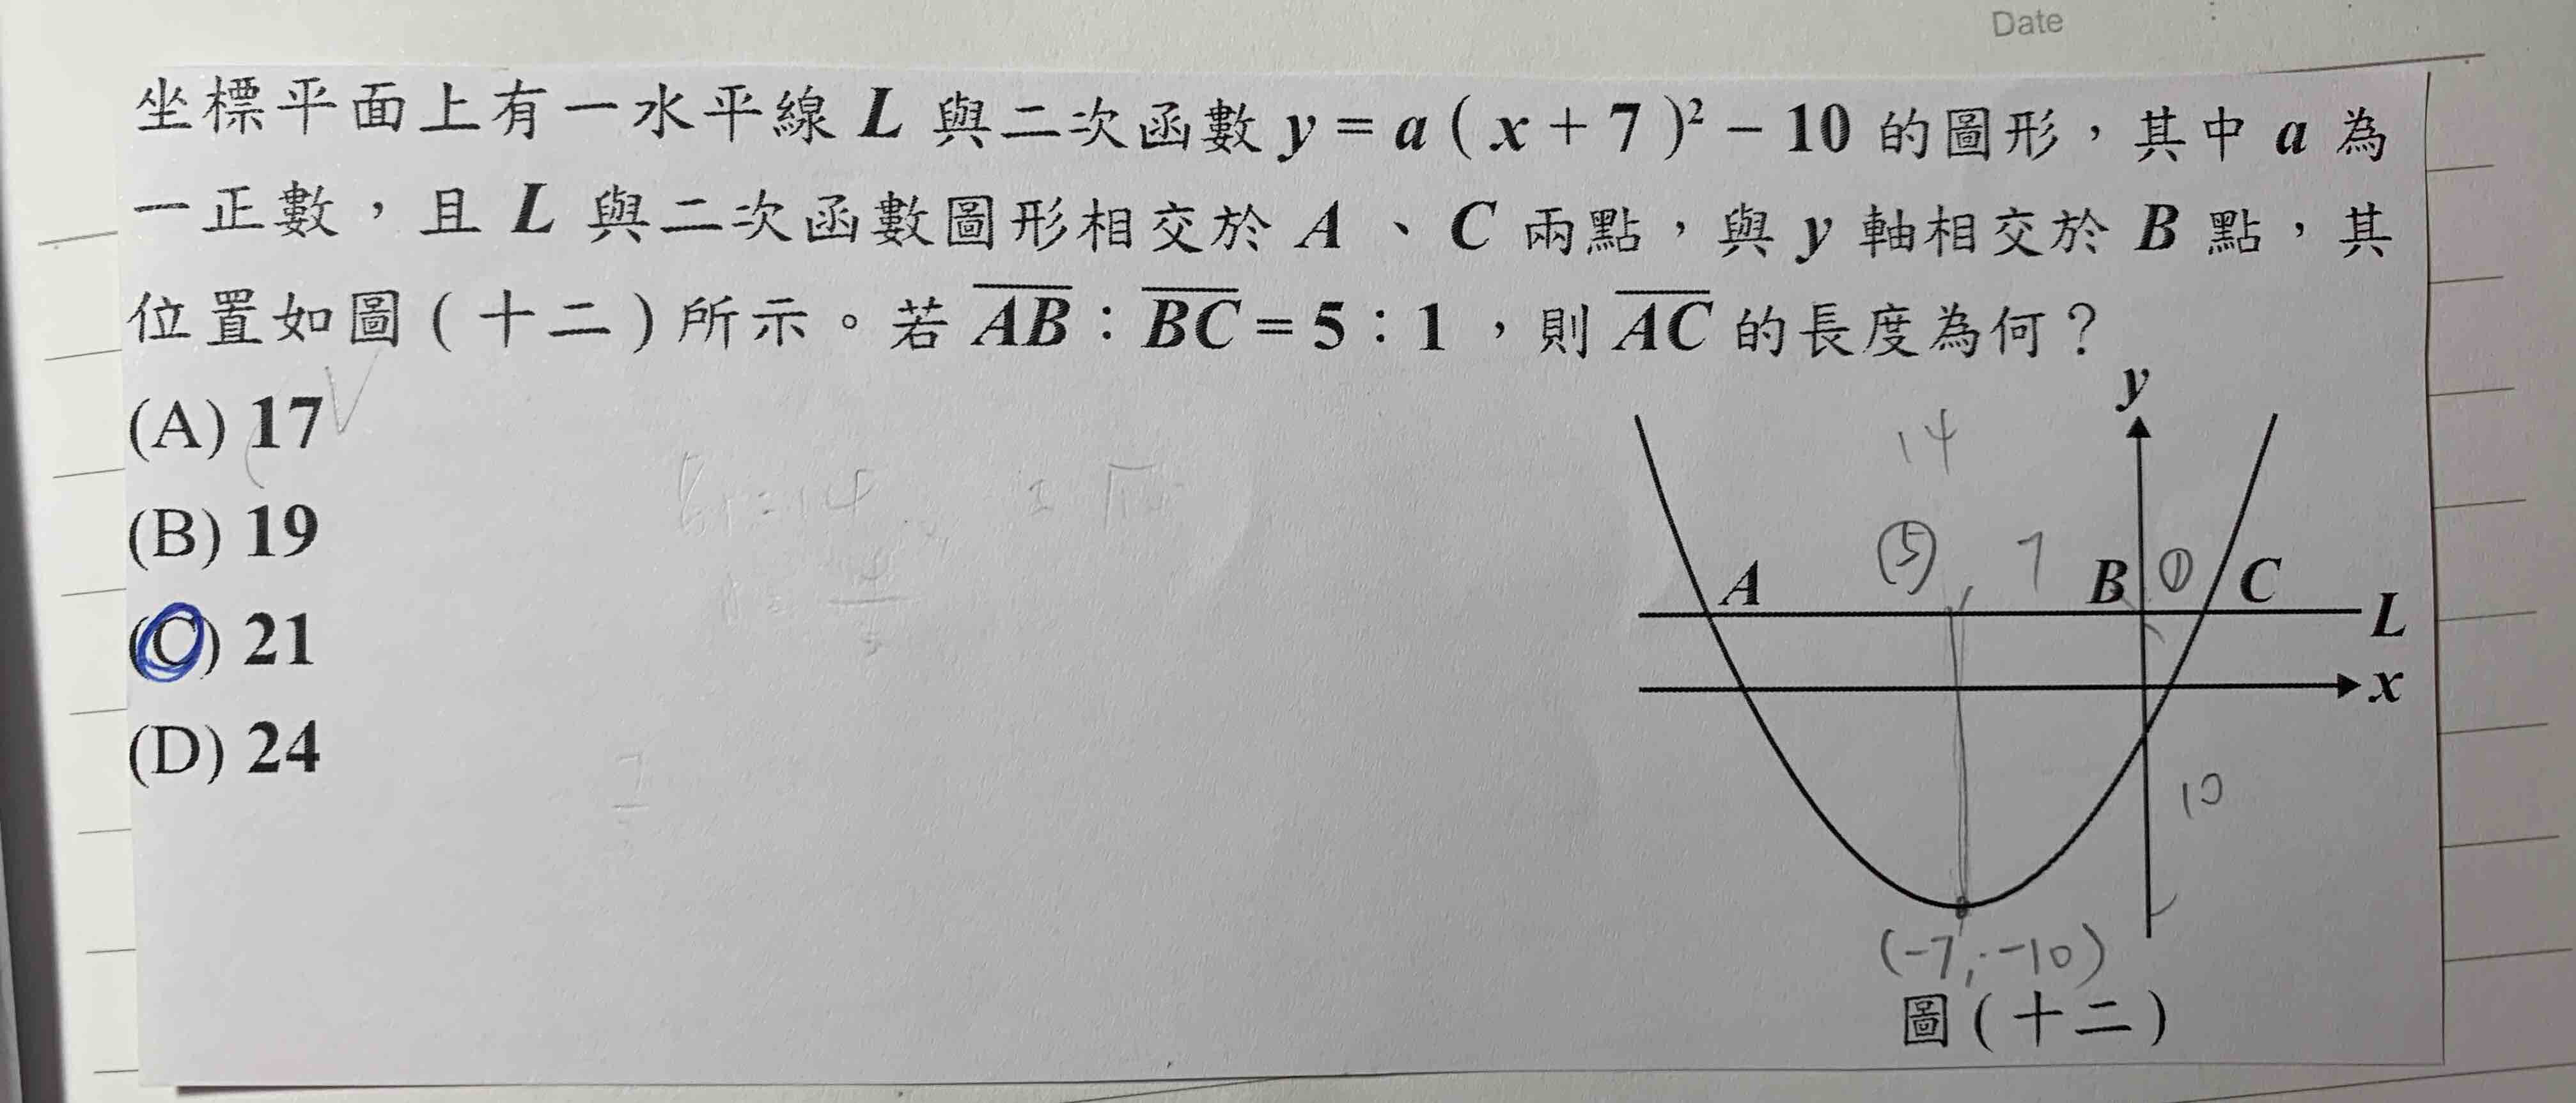 Date
坐標平面上有一水平線 L 與二次函數 y = a ( x + 7 )² − 10 的圖形，其中 a 為
一正數，且 L 與二次函數圖形相交於 A 、 C 兩點，與 y 軸相交於 B 點，其
位置如圖(十二)所示。若 AB : BC = 5 : 1 ，則 AC 的長度為何？
(A) 17
(B) 19
(C) 21
(D) 24
y
14
5 7 1
A B C
L
x
10
(-7, -10)
圖(十二)